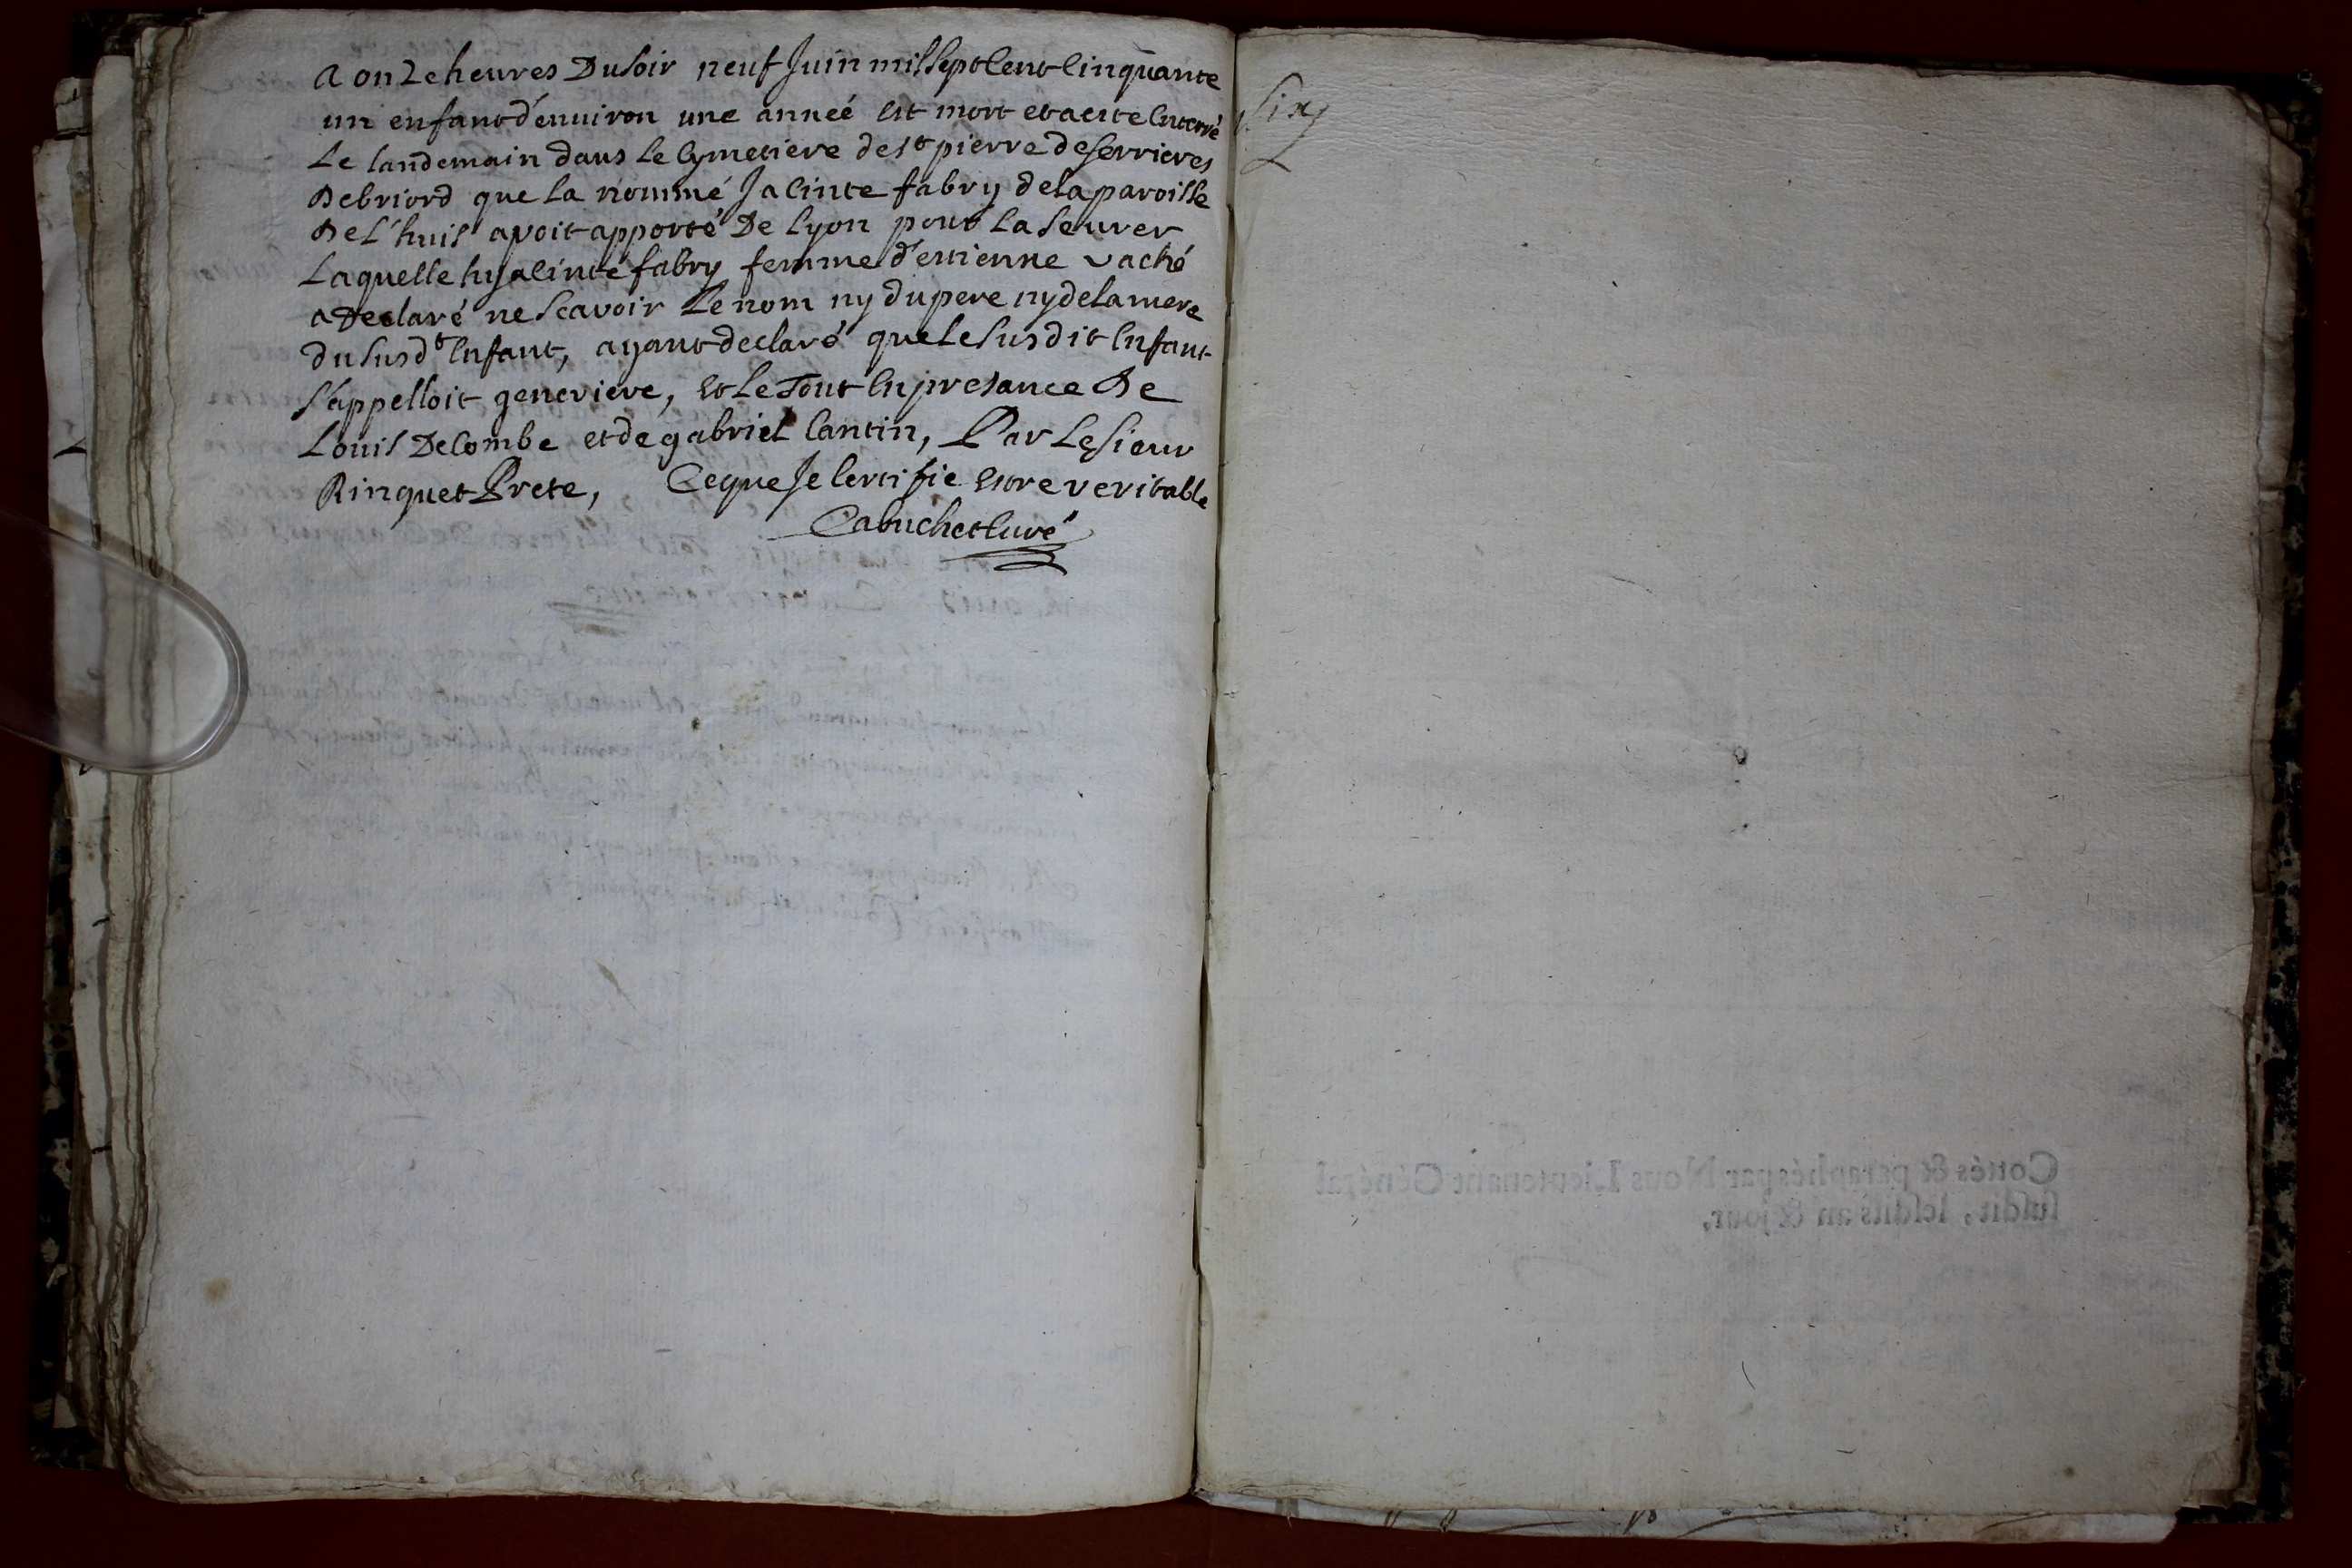 a onze heures du soir neuf Juin mil sept cent cinquante
un enfant d'enuiron une anneé est mort et a este enterré
Le landemain dans Le Cymetiere de st pierre de serrieres
de briord que la nommé Jacinte fabry de la paroisse
de L'huis avoit apporté de Lyon pour la seurer
Laquelle hyacinte fabry femme d'estienne vaché
a declaré ne scavoir Le nom ny du pere ny de la mere
du susdt enfant, ayant declaré que le susdit enfant
s'appelloit genevieve, et Le tout en presance de
Louis decombe et de gabriel Cantin, Par Le sieur
Rinquet Prete, Ce que Je certifie estre veritable
Cabuchet Curé
six
Cottés & paraphés par Nous Lieutenant Général
susdit, lesdits an & jour,